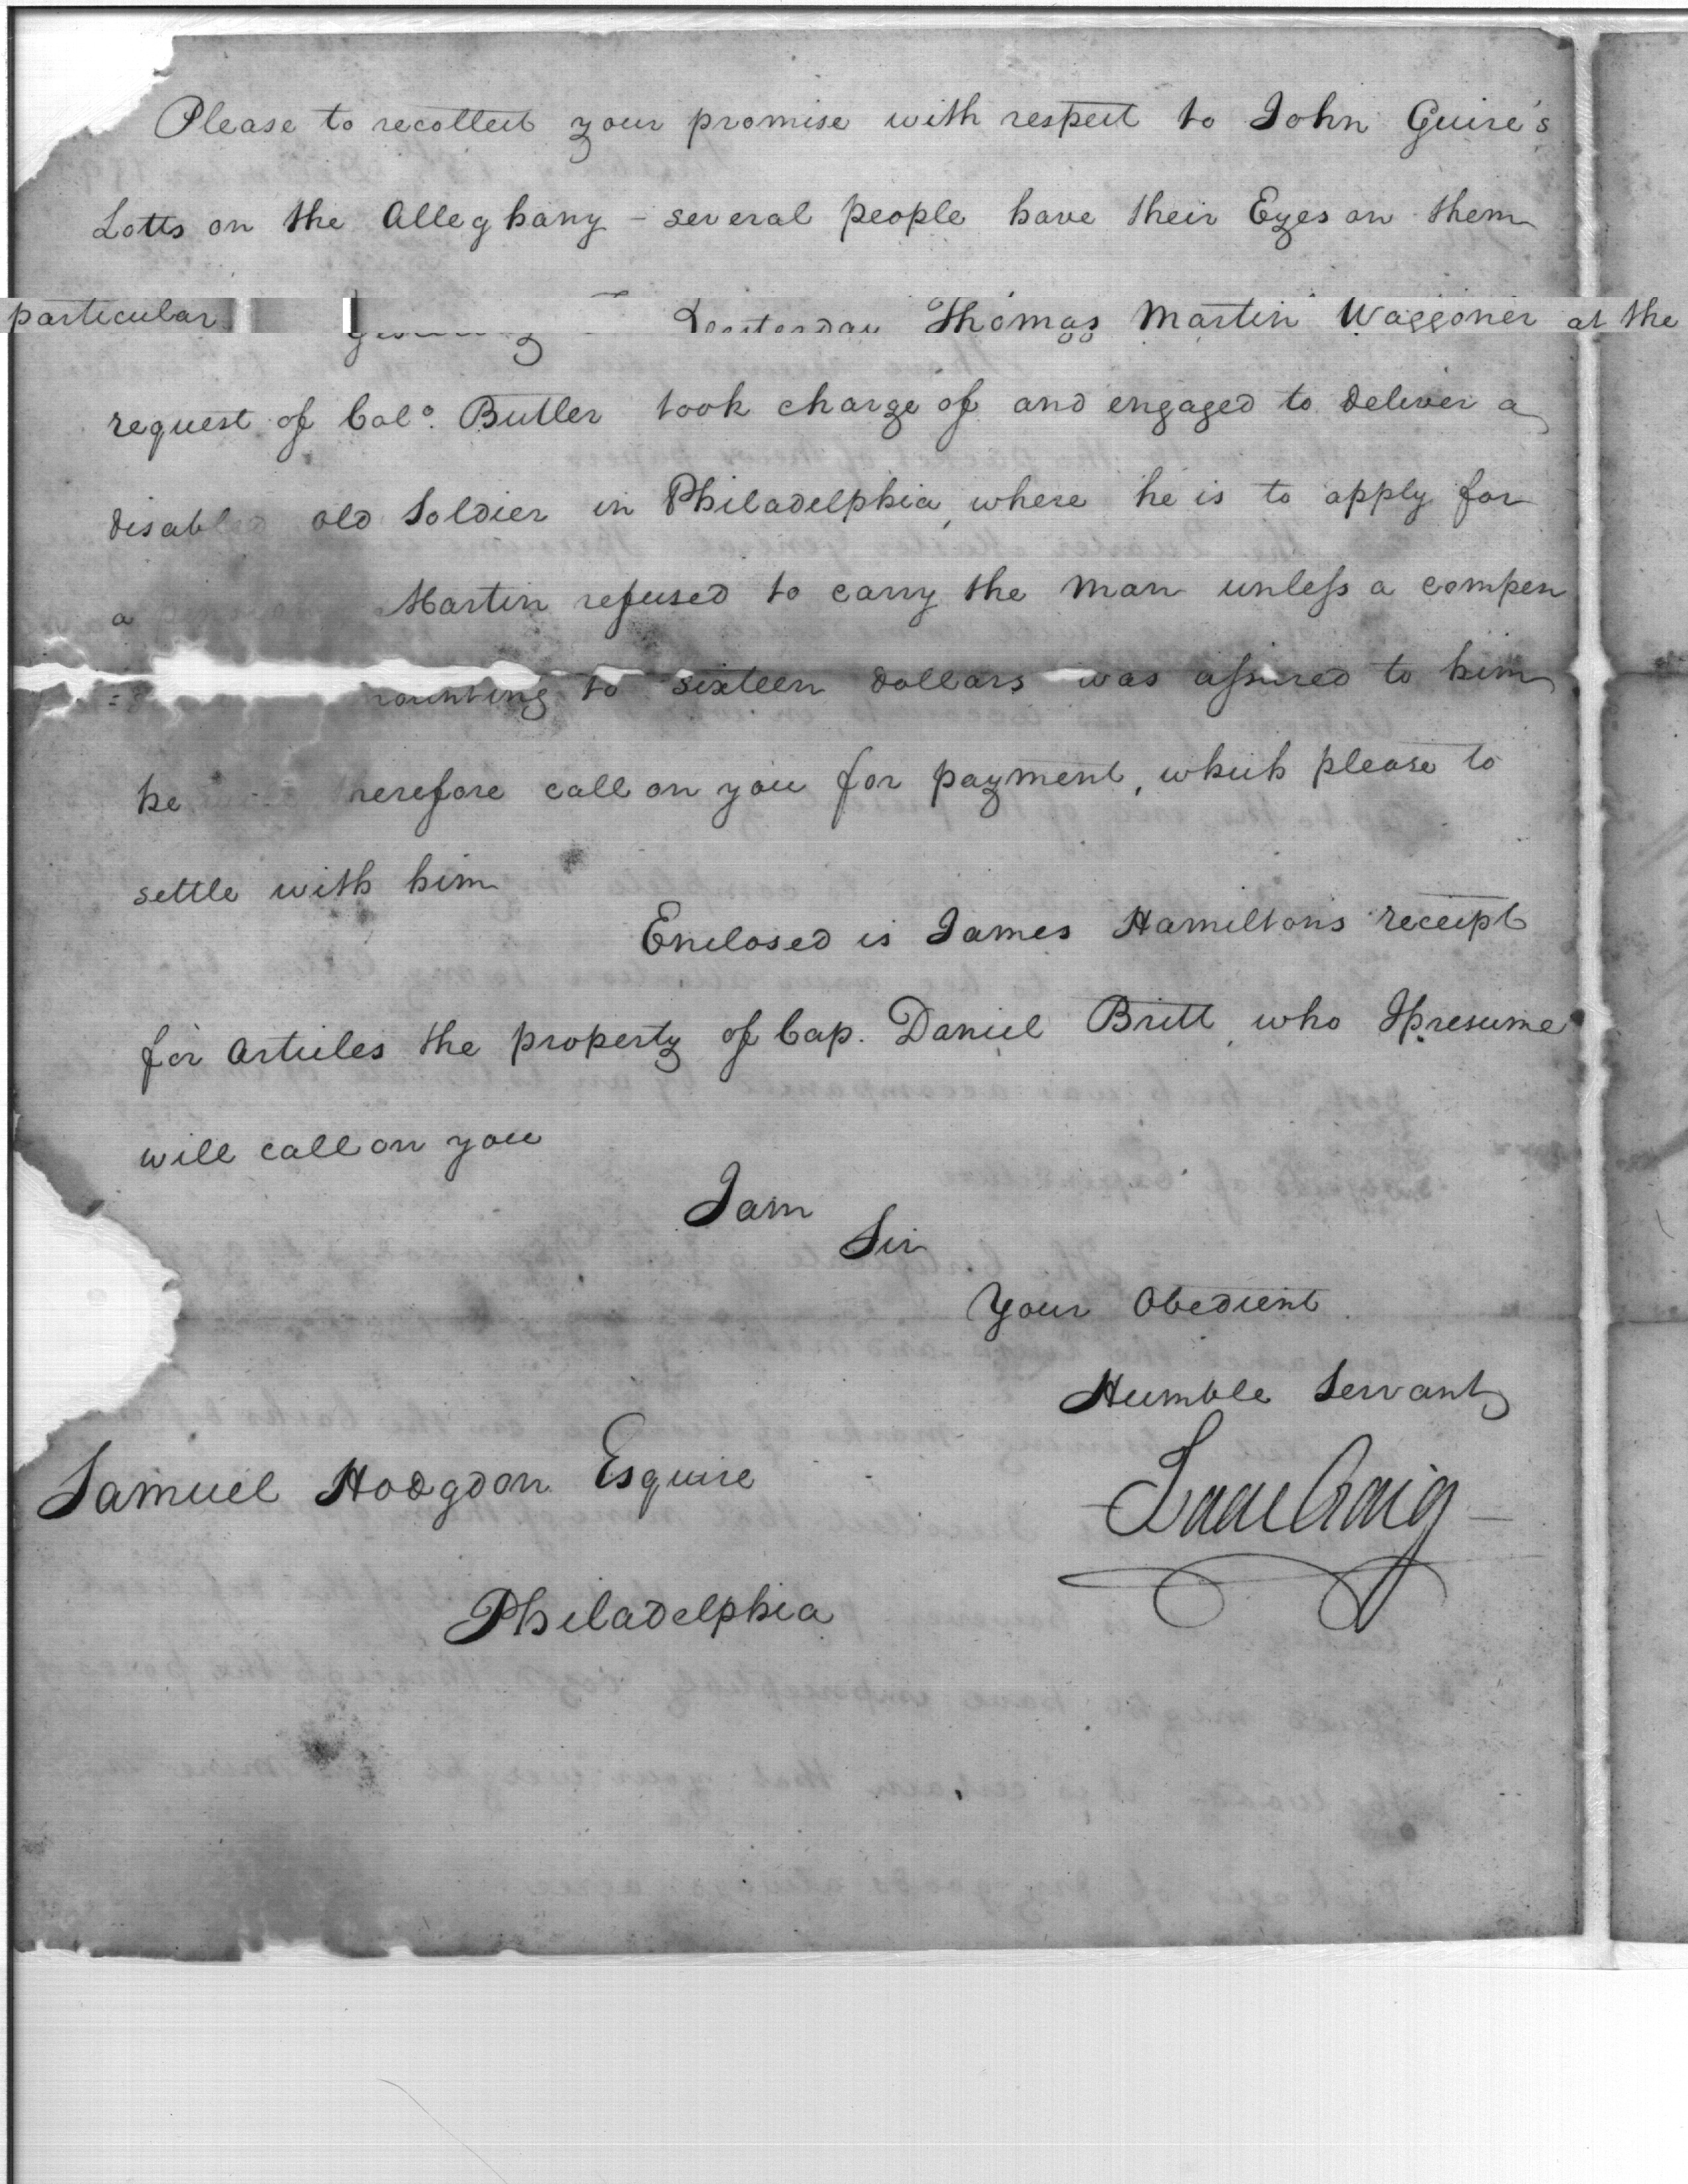 Please to recollect your promise with respect to John Guire's
Lotts on the Alleghany - several people have their Eyes on them
particular Yesterday Thomas Martin Waggoner at the
request of Colo. Butler took charge of and engaged to deliver a
disabled old Soldier in Philadelphia, where he is to apply for
a Martin refused to carry the man unless a compen
to sixteen dollars was assured to him
he call on you for payment, which please to
settle with him
Enclosed is James Hamiltons receipt
for Articles the property of Cap. Daniel Britt, who I presume
will call on you
I am
Sir
Your Obedient
Humble Servant
Isaac Craig
Samuel Hodgdon Esquire
Philadelphia